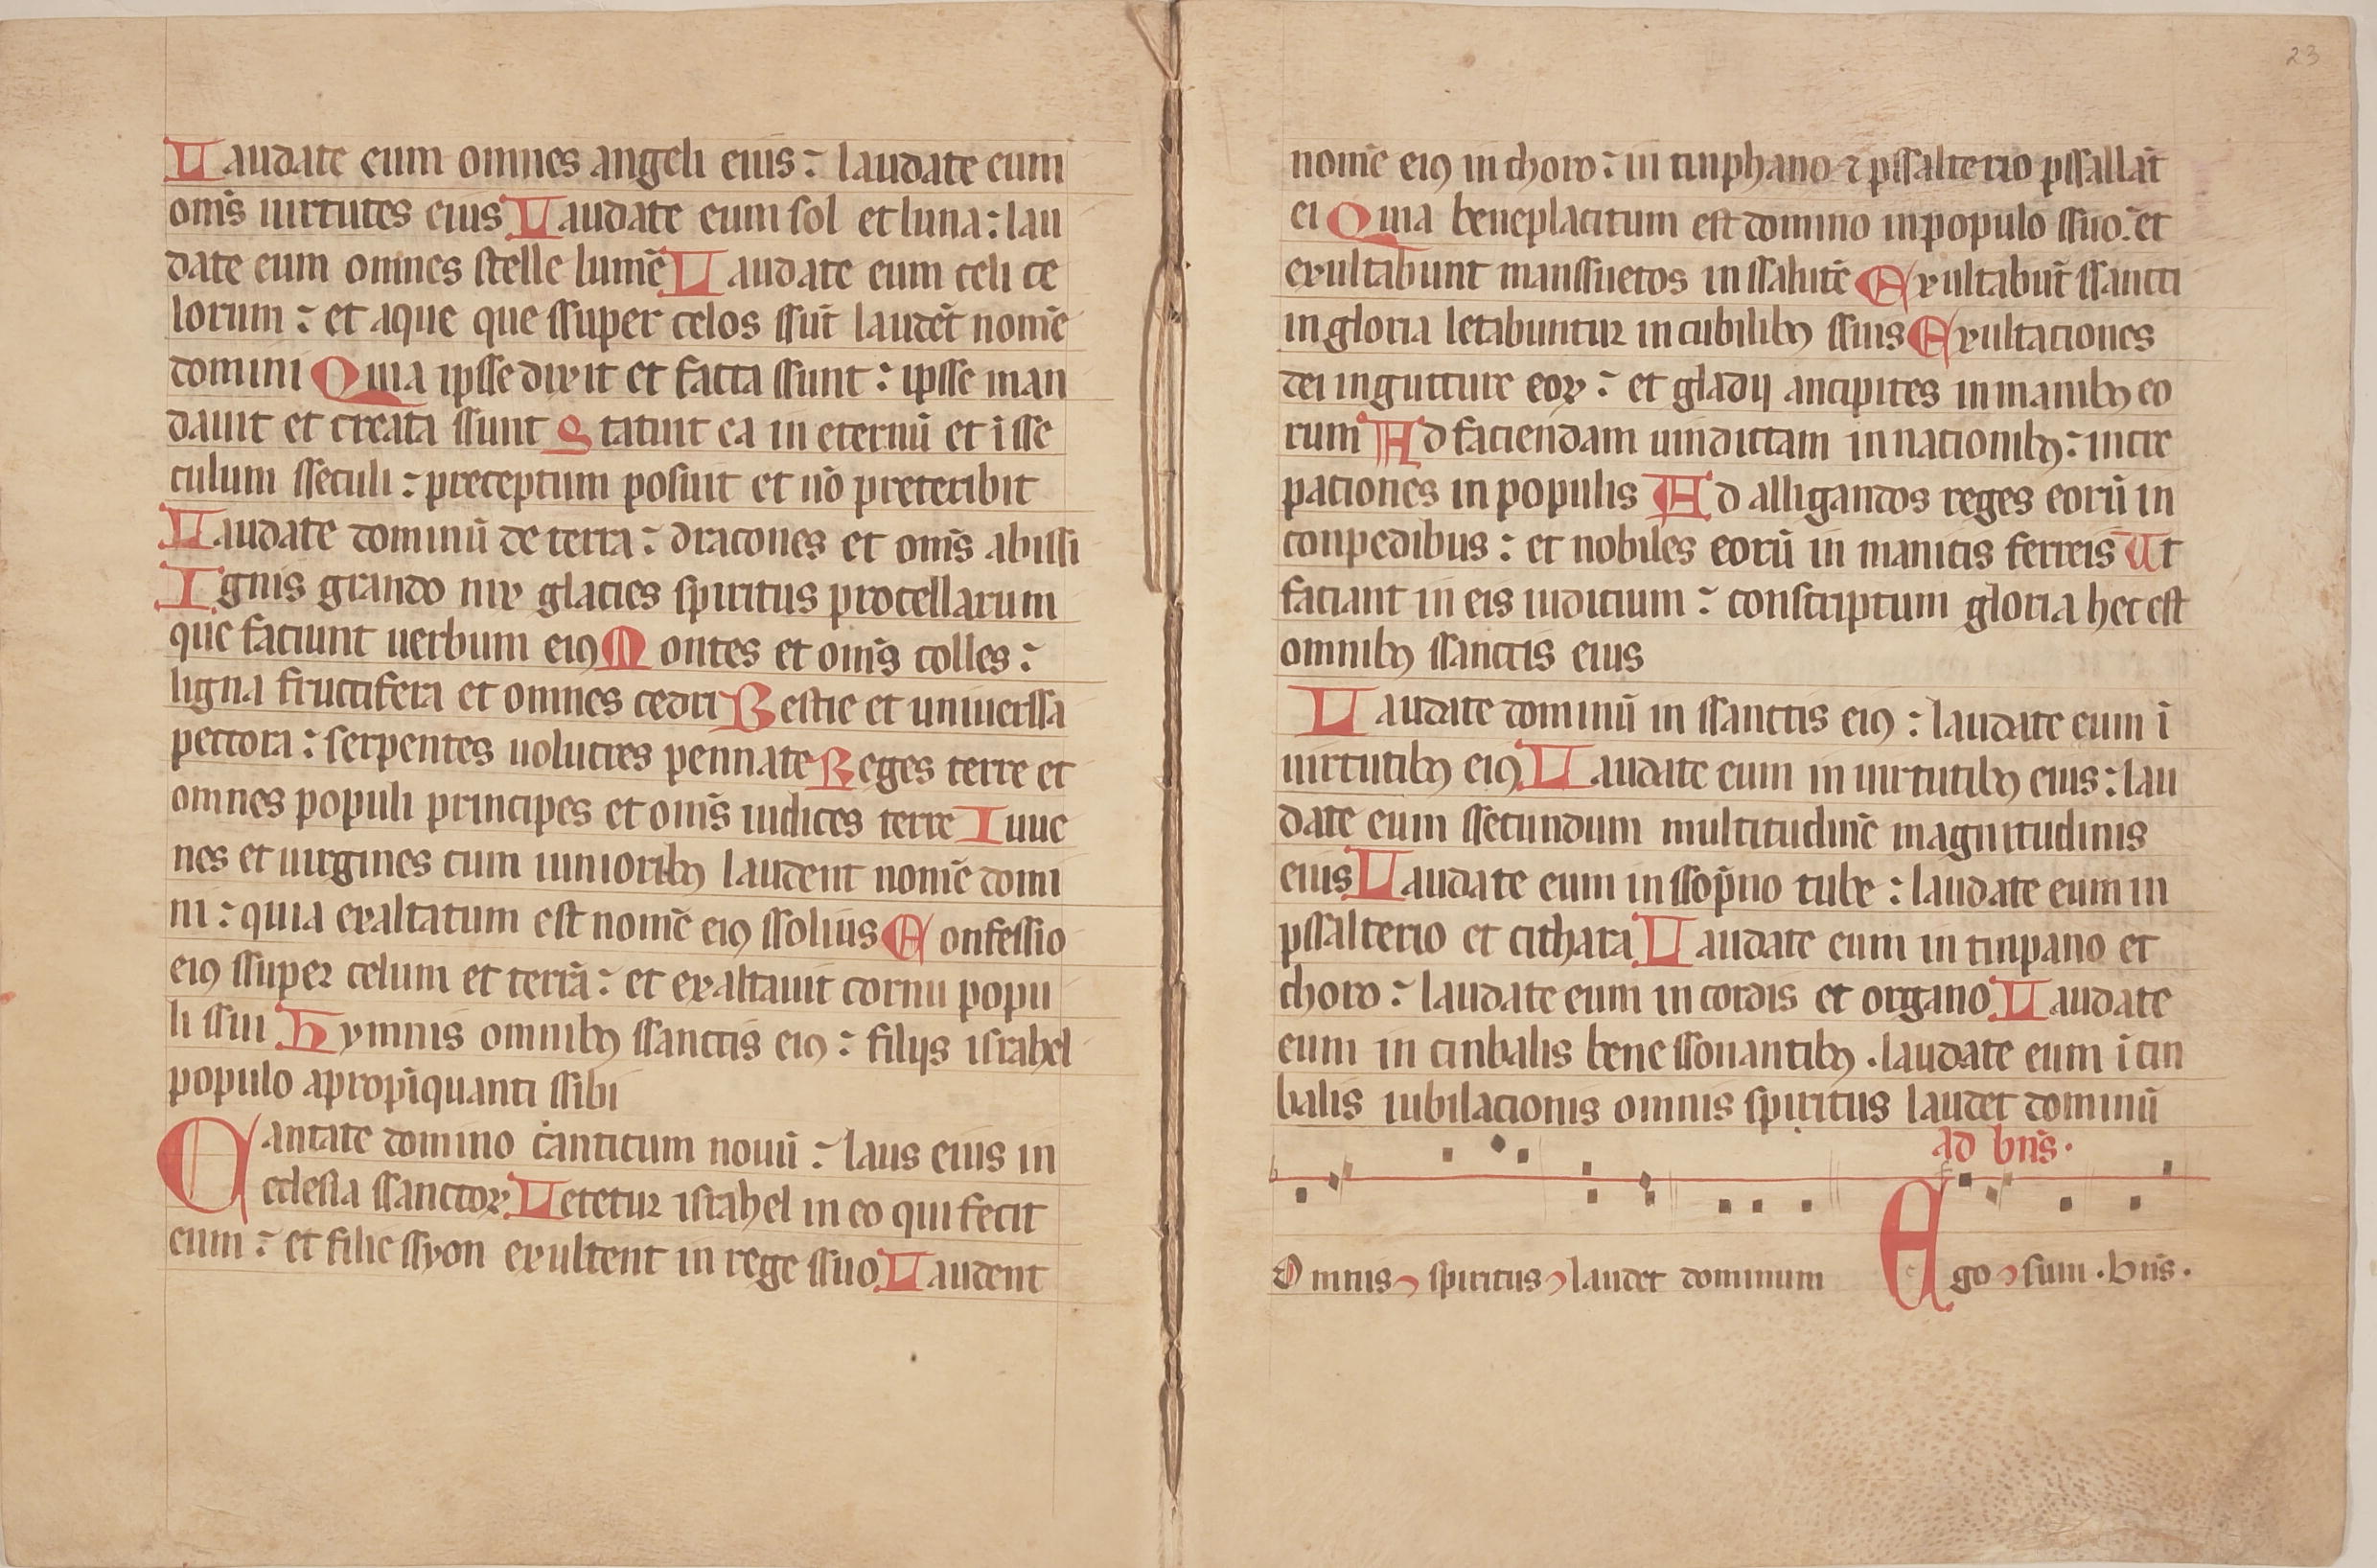 Laudate eum omnes angeli eius: laudate eum
om̄s uirtutes eius Laudate eum sol et luna: lau
date eum omnes stelle lumē Laudate eum celi ce
lorum: et aque que ssuper celos ssūt laudēt nomē
domini Quia ipsse dixit et facta ssunt: ipsse man
dauit et creata ssunt Statuit ea in eternū et ī sse
culum sseculi: preceptum posuit et nō preteribit
Laudate dominū de terra: dracones et om̄s abissi
Ignis grando nix glacies spiritus procellarum
que faciunt uerbum eiꝰ Montes et om̄s colles:
ligna fructifera et omnes cedri Bestie et uniuerssa
peccora: serpentes uolucres pennate Reges terre et
omnes populi principes et om̄s iudices terre Iuue
nes et uirgines cum iunioribꝰ laudent nomē domi
ni: quia exaltatum est nomē eiꝰ ssolius Confessio
eiꝰ ssuper celum et terrā: et exaltauit cornu popu
li ssui Hymnis omnibꝰ ssanctis eiꝰ: filijs israhel
populo apropīquanti ssibi
Cantate domino canticum nouū: laus eius in
eclesia ssanctoꝝ Letetur israhel in eo qui fecit
eum: et filie ssyon exultent in rege ssuo Laudent
23
nomē eiꝰ in choro: in tinphano ⁊ pssalterio pssallāt
ei Quia beneplacitum est domino in populo ssuo: et
exultabunt manssuetos in ssalutē Exultabūt ssancti
in gloria letabuntur in cubilibꝰ ssuis Exultaciones
dei in gutture eoꝝ: et gladij ancipites in manibꝰ eo
rum Ad faciendam uindictam in nacionibꝰ: incre
paciones in populis Ad alligandos reges eorū in
conpedibus: et nobiles eorū in manicis ferreis Ut
faciant in eis iudicium: conscriptum gloria hec est
omnibꝰ ssanctis eius
Laudate dominū in ssanctis eiꝰ: laudate eum ī
uirtutibꝰ eiꝰ Laudate eum in uirtutibꝰ eius: lau
date eum ssecundum multitudinē magnitudinis
eius Laudate eum in ssop̄no tube: laudate eum in
pssalterio et cithara Laudate eum in tinpano et
choro: laudate eum in cordis et organo Laudate
eum in cinbalis bene ssonantibꝰ. laudate eum ī cin
balis iubilacionis omnis spiritus laudet dominū
ad bn̄s.
Omnis spiritus laudet dominum Ego sum. bn̄s.